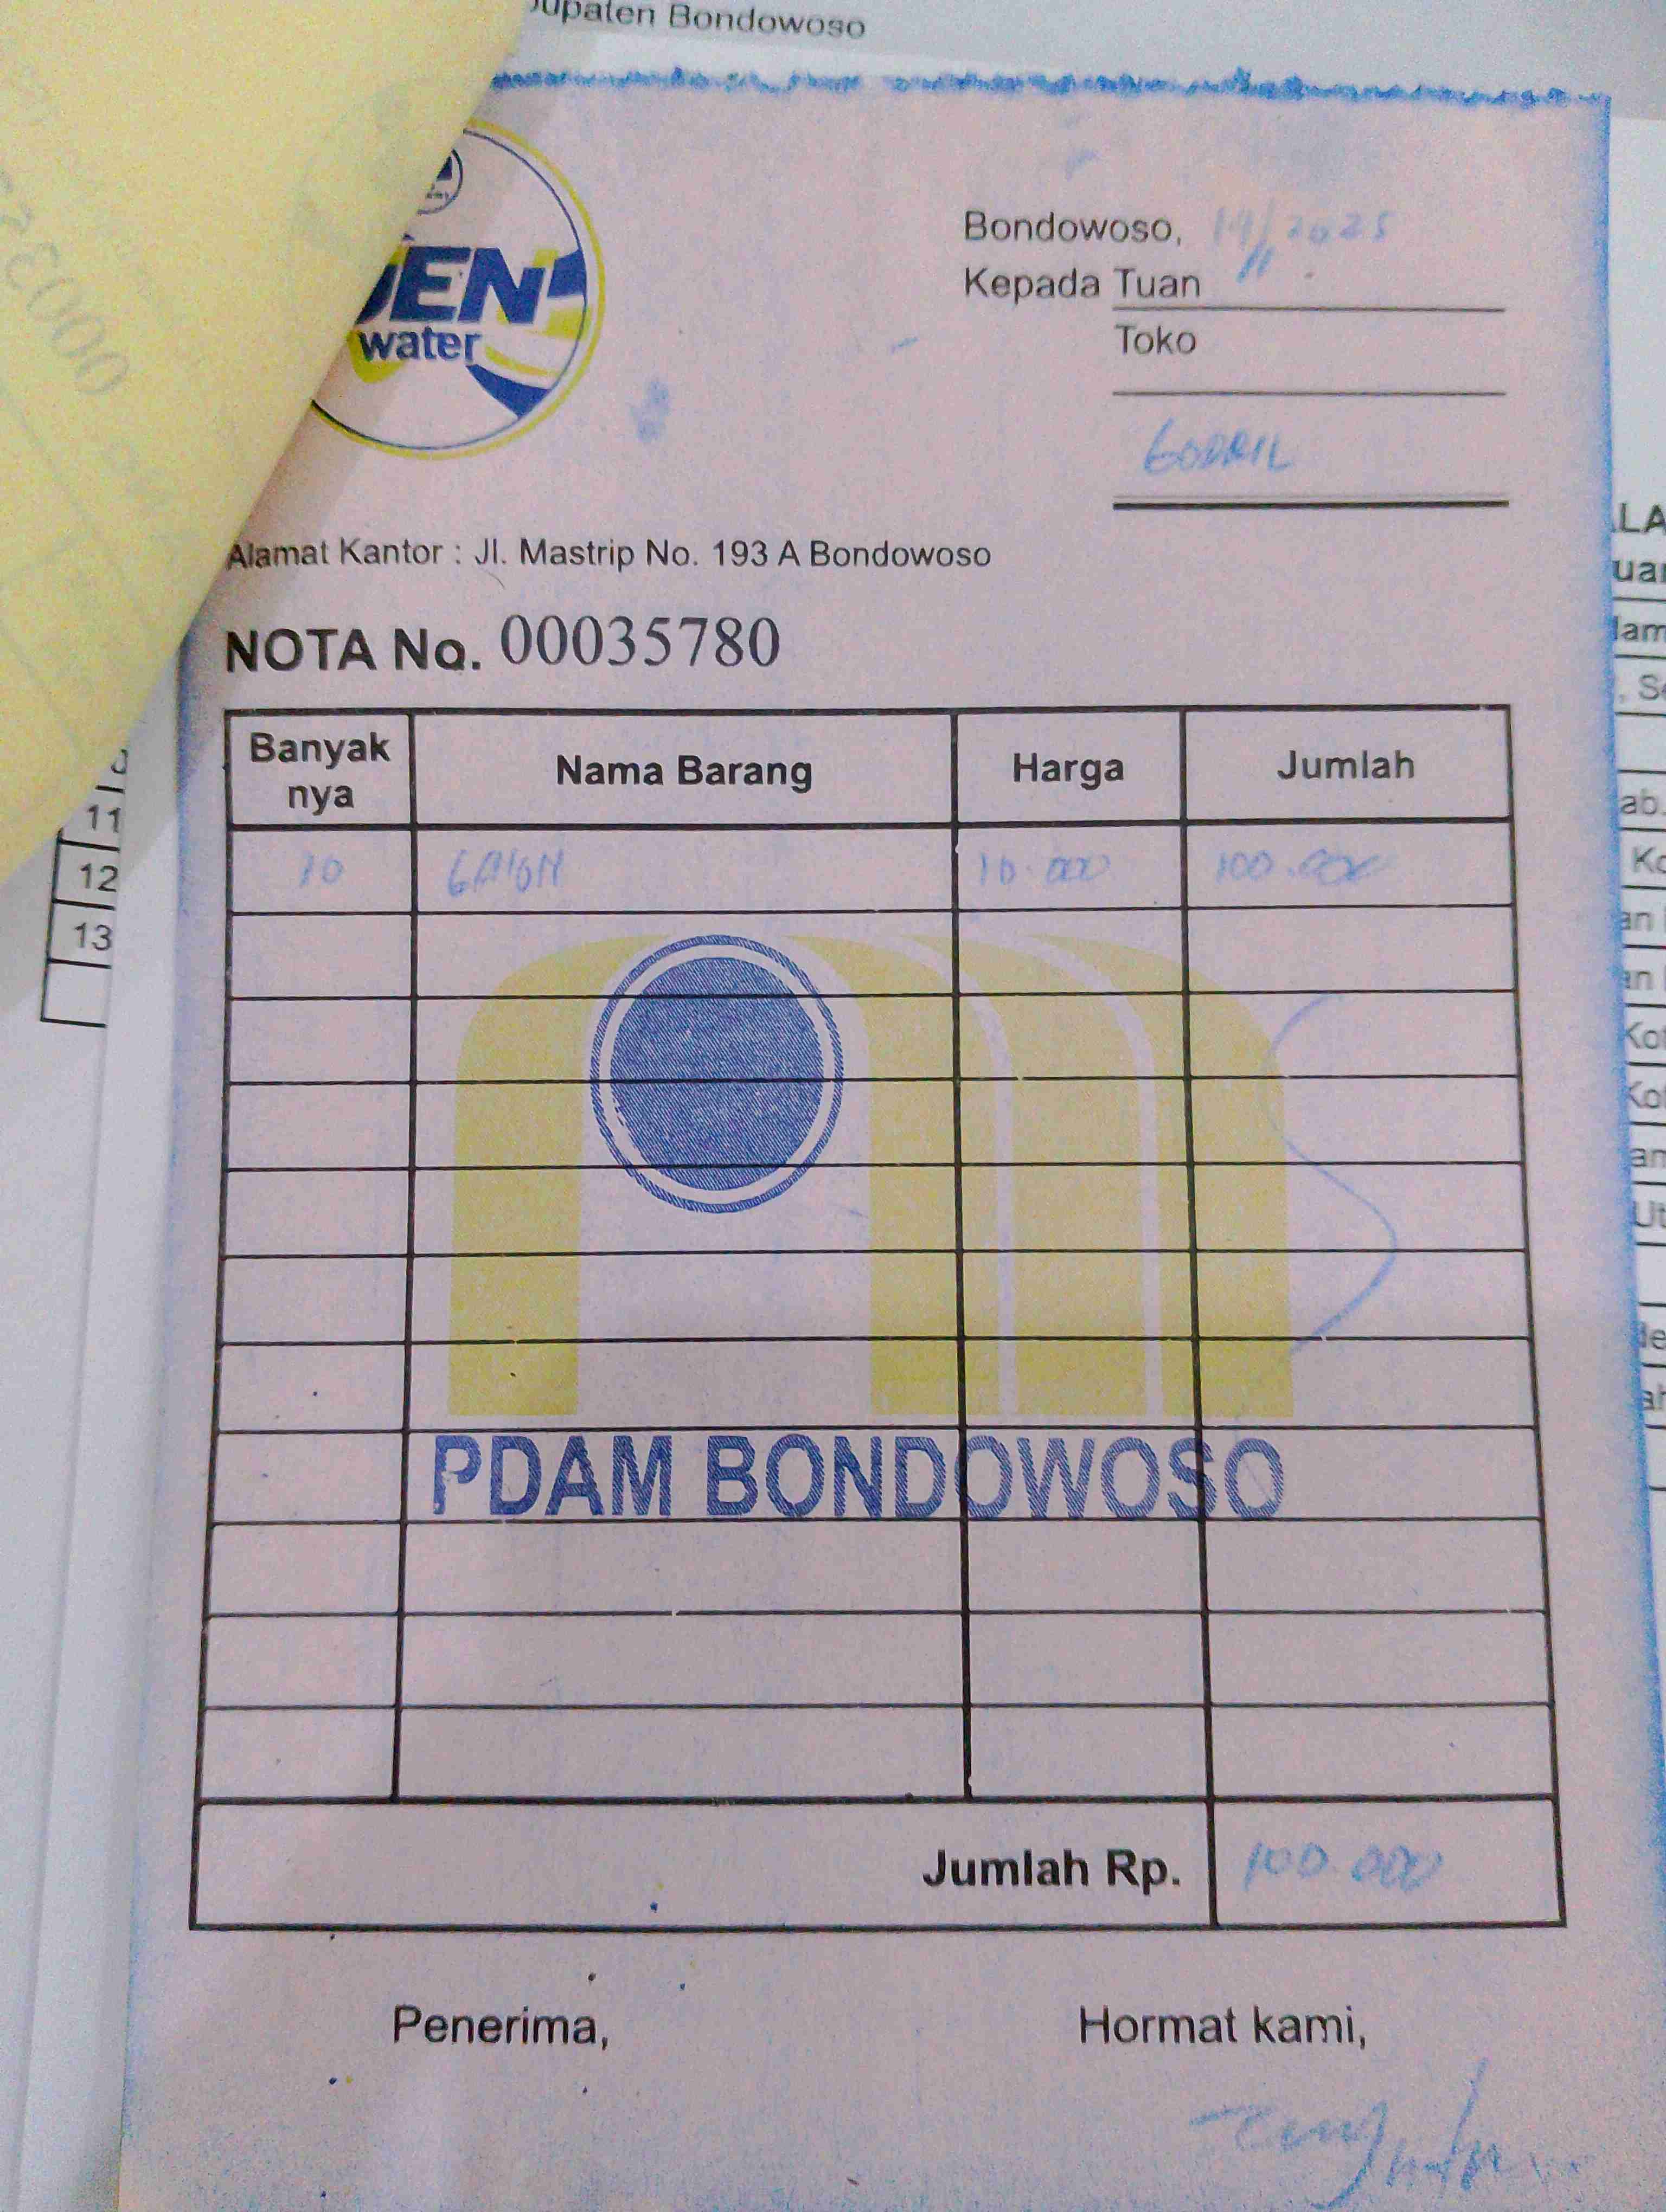 upaten Bondowoso
EN
water
Bondowoso, 14/11 2025
Kepada Tuan
Toko
Alamat Kantor : Jl. Mastrip No. 193 A Bondowoso
NOTA No. 00035780
Banyak nya Nama Barang Harga Jumlah
10 GALON 10.000 100.000
PDAM BONDOWOSO
Jumlah Rp. 100.000
Penerima, Hormat kami,
11
12
13
LA
uar
lam
, Se
ab.
Ko
an
an
Kot
Kot
am
Ut
de
ah